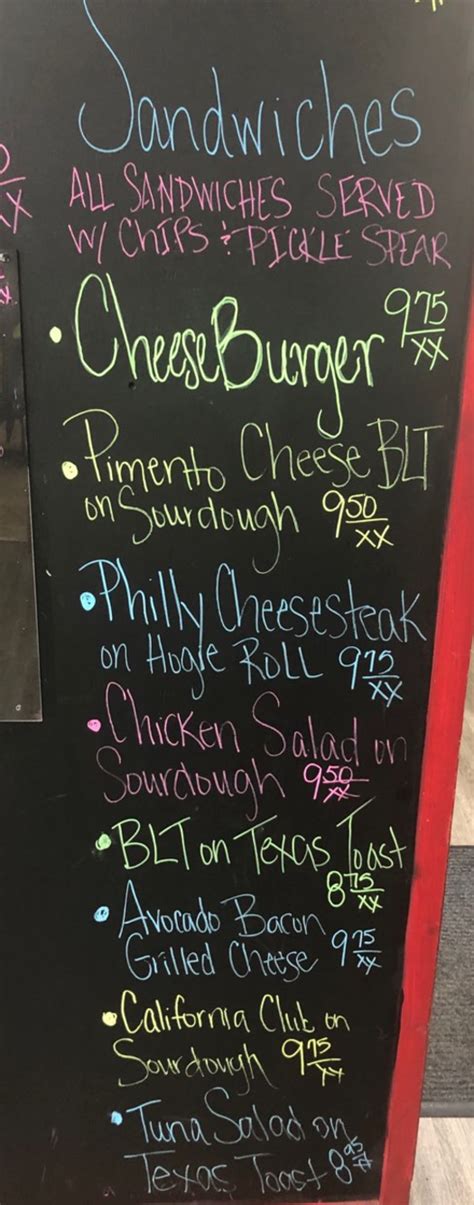 Sandwiches
ALL SANDWICHES SERVED
W/ CHIPS & PICKLE SPEAR
• CheeseBurger 9 75/XX
• Pimento Cheese BLT
on Sourdough 9 50/XX
• Philly Cheesesteak
on Hogie ROLL 9 75/XX
• Chicken Salad on
Sourdough 9 50/XX
• BLT on Texas Toast
8 75/XX
• Avocado Bacon
Grilled Cheese 9 75/XX
• California Club on
Sourdough 9 75/XX
• Tuna Salad on
Texas Toast 8 95/XX